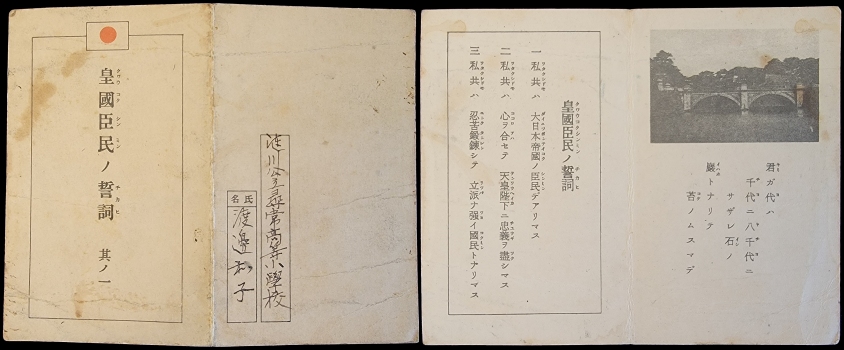 皇國臣民ノ誓詞 其ノ一
クワウ コク シン ミン チカヒ
川公立尋常高等小學校
氏名
渡邊 子
君ガ代ハ
千代ニ八千代ニ
サザレ石ノ
巖トナリテ
苔ノムスマデ
皇國臣民ノ誓詞
クワウコクシンミン チカヒ
一 私共ハ 大日本帝國ノ臣民デアリマス
二 私共ハ 心ヲ合セテ 天皇陛下ニ忠義ヲ盡シマス
三 私共ハ 忍苦鍛鍊シテ 立派ナ强イ國民トナリマス